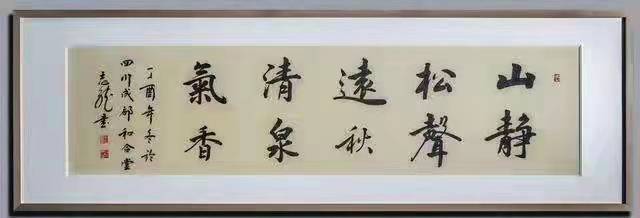 山静
松聲
遠秋
清泉
氣香
丁酉年冬於
四川成都和合堂
志龍書